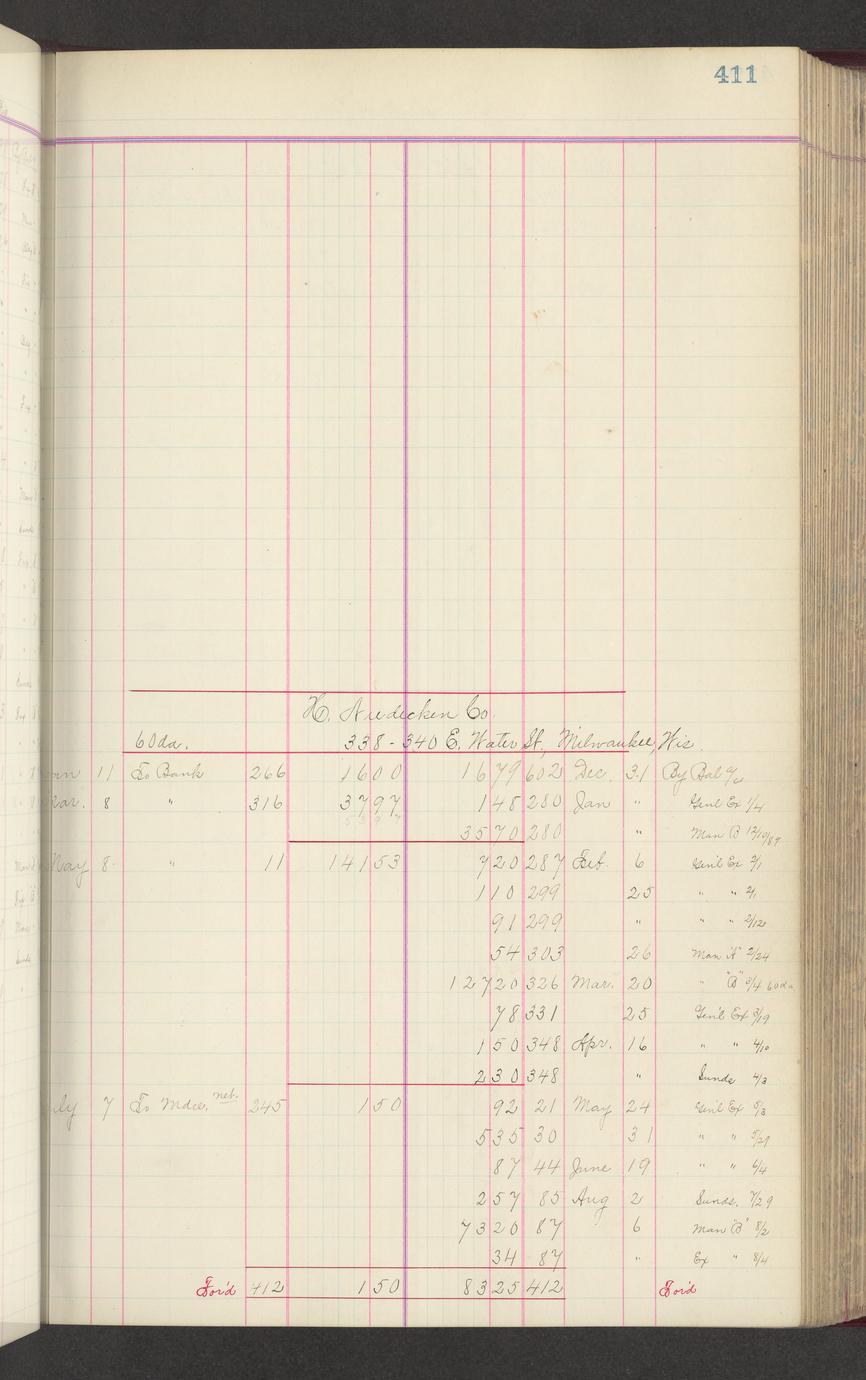 411
H. Niedecken Co.
60 da. 338-340 E. Water St, Milwaukee, Wis.
11 To Bank 266 1600 1679 602 Dec. 31 By Bal a/c
Mar. 8 " 316 3797 148 280 Jan " Genl Ex 1/4
3570 280 " Man B 12/19/87
May 8 " 11 14153 720 287 Feb. 6 Gen'l Ex 2/1
110 299 25 " " 2/1
91 299 " " " 2/12
54 303 26 Man "A" 2/24
12720 326 Mar. 20 " "B" 3/4 60da
78 331 25 Gen'l Ex 3/19
150 348 Apr. 16 " " 4/10
230 348 " Sunds 4/3
7 To Mdse. net. 245 150 92 21 May 24 Gen'l Ex 5/3
535 30 31 " " 5/29
87 44 June 19 " " 6/4
257 85 Aug 2 Sunds. 7/29
7320 87 6 Man "B" 8/2
34 87 " Ex " 8/4
For'd 412 150 8325 412 For'd